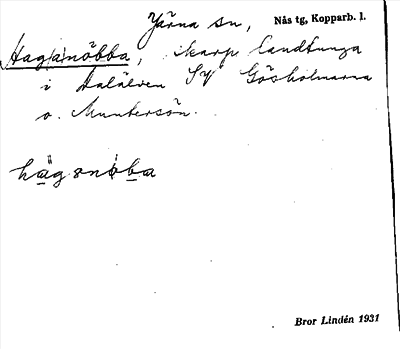 Järna sn, Nås tg, Kopparb. l.
Hag(a)nöbba, skarp landtunga
i Dalälven SV Gösholmarna
o. Muntersön.
hägsnöba
Bror Lindén 1931